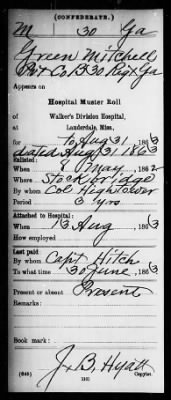 (CONFEDERATE.)
M 30 Ga
Green Mitchell
Pvt Co B 30 Regt Ga
Appears on
Hospital Muster Roll
of Walker's Division Hospital,
at Lauderdale, Miss,
for to Aug 31, 1863
dated Aug 31 1863
Enlisted:
When May, 1862
Where Stockbridge
By whom Col Hightower
Period 3 yrs
Attached to Hospital:
When 13 Aug, 1863
How employed
Last paid
By whom Capt Hitch
To what time 30 June, 1863
Present or absent Present
Remarks:
Book mark:
J. B. Hyatt
Copyist.